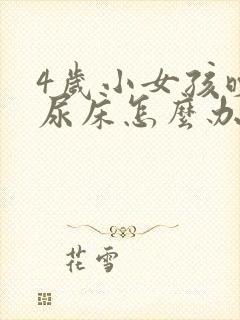 4歲小女孩晚
尿床怎麼办
花雪